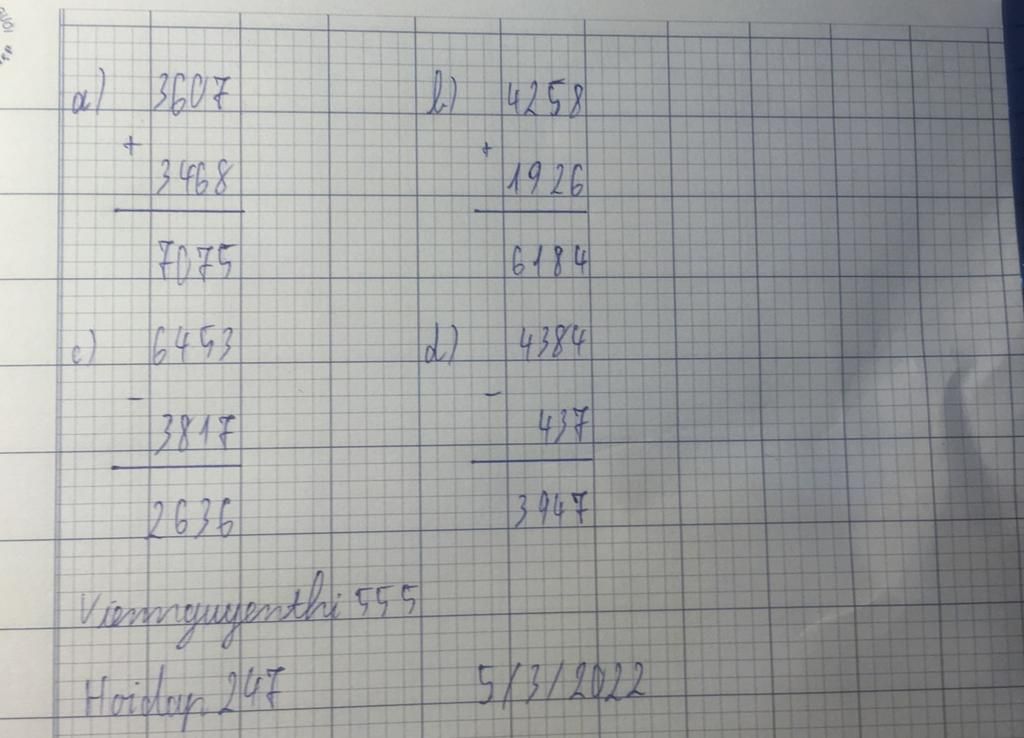 a) 3607 b) 4258
+ +
3468 1926
7075 6184
c) 6453 d) 4384
- -
3817 437
2636 3947
Viennguyenthi 555
Hoidap 247 5/3/2022